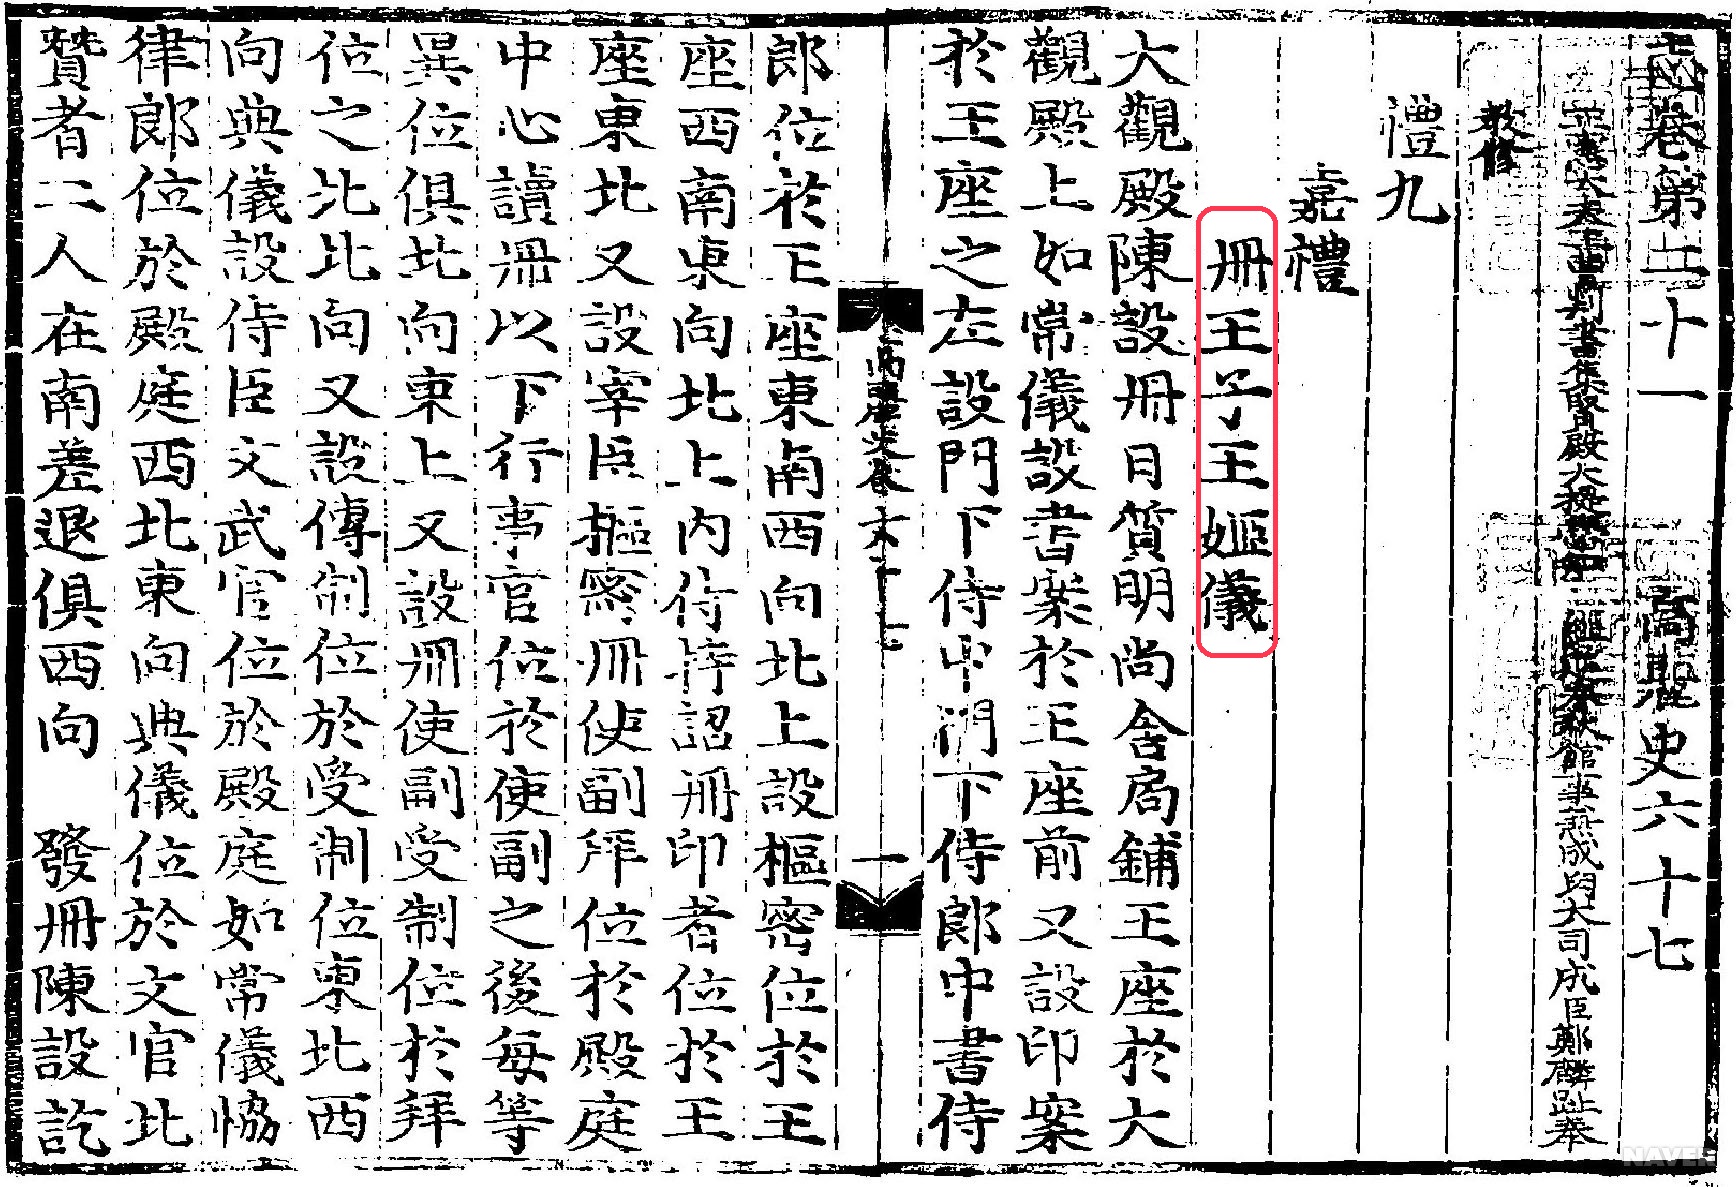 志卷第二十一 高麗史六十七
正憲大夫工曹判書集賢殿大提學知 經筵春秋館事兼成均大司成臣鄭麟趾奉
敎修
禮九
嘉禮
冊王子王姬儀
大觀殿陳設冊日質明尚舍局鋪王座於大
觀殿上如常儀設書案於王座前又設印案
於王座之左設門下侍中門下侍郎中書侍
高麗史卷六十七
一
郎位於王座東南西向北上設樞密位於王
座西南東向北上內侍持詔冊印者位於王
座東北又設宰臣樞密冊使副拜位於殿庭
中心讀冊以下行事官位於使副之後每等
異位俱北向東上又設冊使副受制位於拜
位之北北向又設傳制位於受制位東北西
向典儀設侍臣文武官位於殿庭如常儀協
律郎位於殿庭西北東向典儀位於文官北
贊者二人在南差退俱西向 發冊陳設訖
NAVER